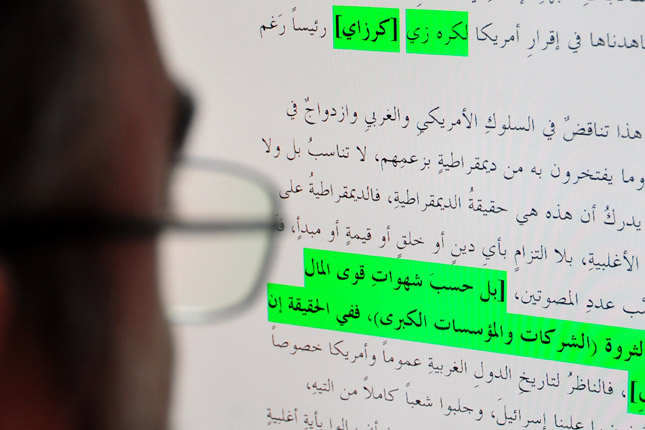 شاهدناها في إقرارِ أمريكا لكره زي [كرزاي] رئيساً رَغم
هذا تناقضٌ في السلوكِ الأمريكي والغربيِ وازدواجٌ في
وما يفتخرون به من ديمقراطيةٍ بزعمِهم، لا تناسبُ بل ولا
يدركُ أن هذه هي حقيقةُ الديمقراطيةِ، فالديمقراطيةُ على
الأغلبيةِ، بلا التزامٍ بأيِ دينٍ أو خلقٍ أو قيمةٍ أو مبدأٍ،
عددِ المصوتين، [بل حسبَ شهواتِ قوى المال
لثروة (الشركات والمؤسسات الكبرى)، ففي الحقيقة إن
]، فالناظرُ لتاريخِ الدول الغربيةِ عموماً وأمريكا خصوصاً
علينا إسرائيلَ، وجلبوا شعباً كاملاً من التيهِ،
بأيةِ أغلبيةٍ